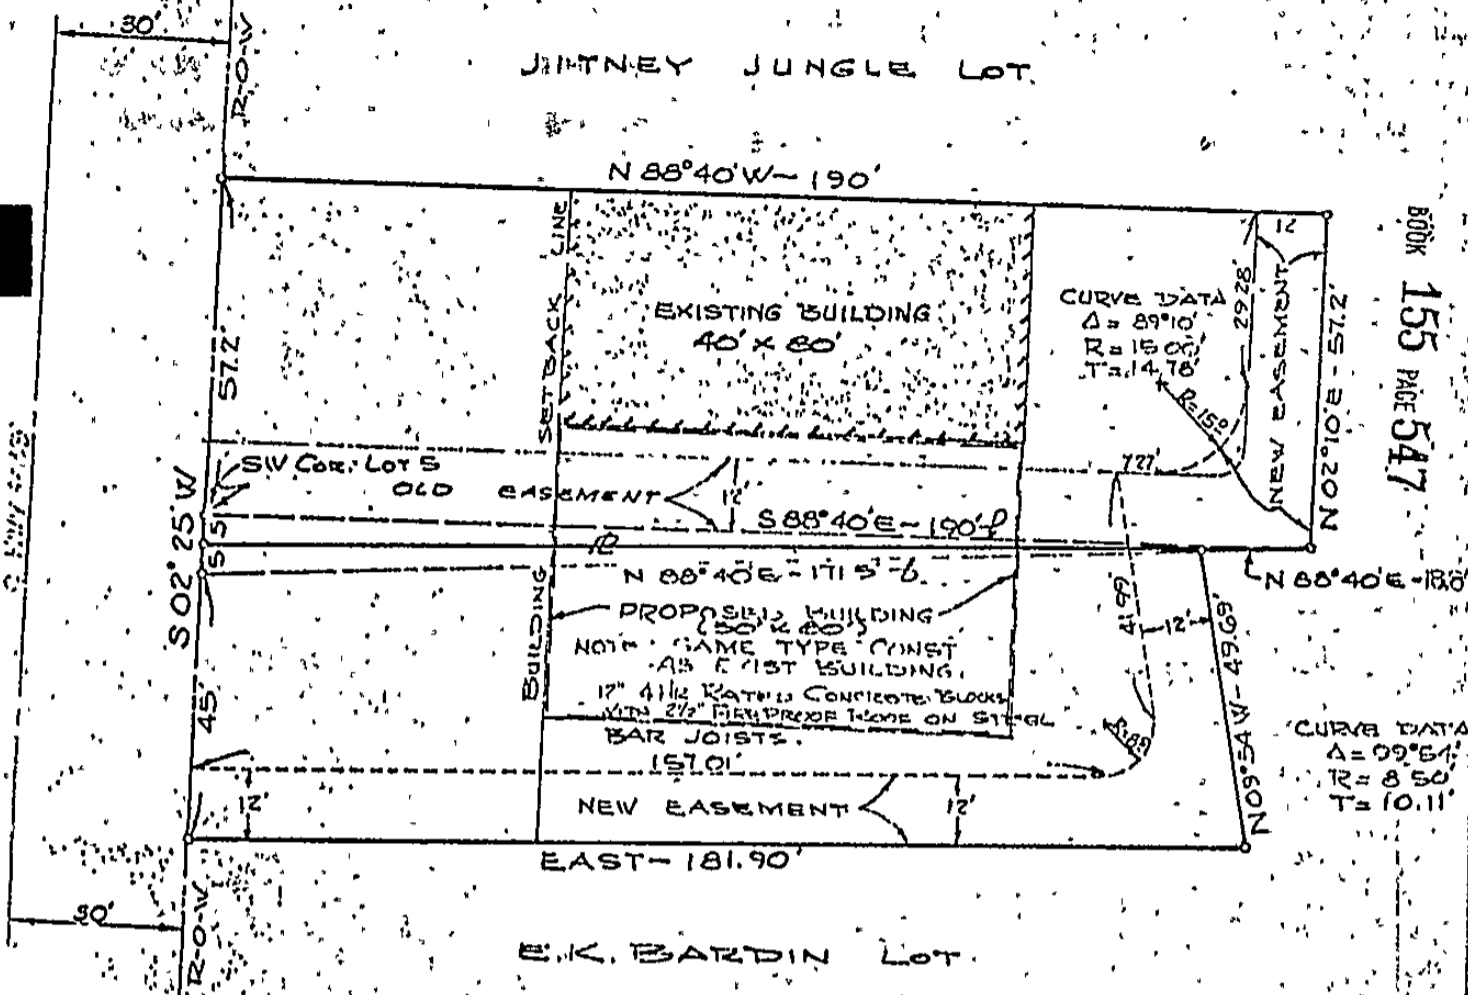 30'
R-O-W
JITNEY JUNGLE LOT.
N 88°40'W - 190'
12
BOOK 155 PAGE 547
SETBACK LINE
EXISTING BUILDING
40' x 80'
CURVE DATA
Δ = 89°10'
R = 15.00'
T = 14.78'
R=15.0
29.28'
NEW EASEMENT
N 02°10'E - 57.2'
57.2'
SW Cor. Lot 5
OLD EASEMENT
12'
7.27'
S 88°40'E - 190'
S 02° 25' W
5
5
N 88°40'E - 171.5'
N 88°40'E
PROPOSED BUILDING
NOTE: SAME TYPE CONST
AS EXIST BUILDING.
CONCRETE BLOCKS
WITH 2½" FIREPROOF ON STEEL
BAR JOISTS.
BUILDING
41.99
12'
N 09°54'W - 49.69'
45'
157.01'
CURVE DATA
R = 8.50'
T = 10.11'
12'
NEW EASEMENT
12'
EAST - 181.90'
30'
R-O-W
E.K. BARDIN LOT.